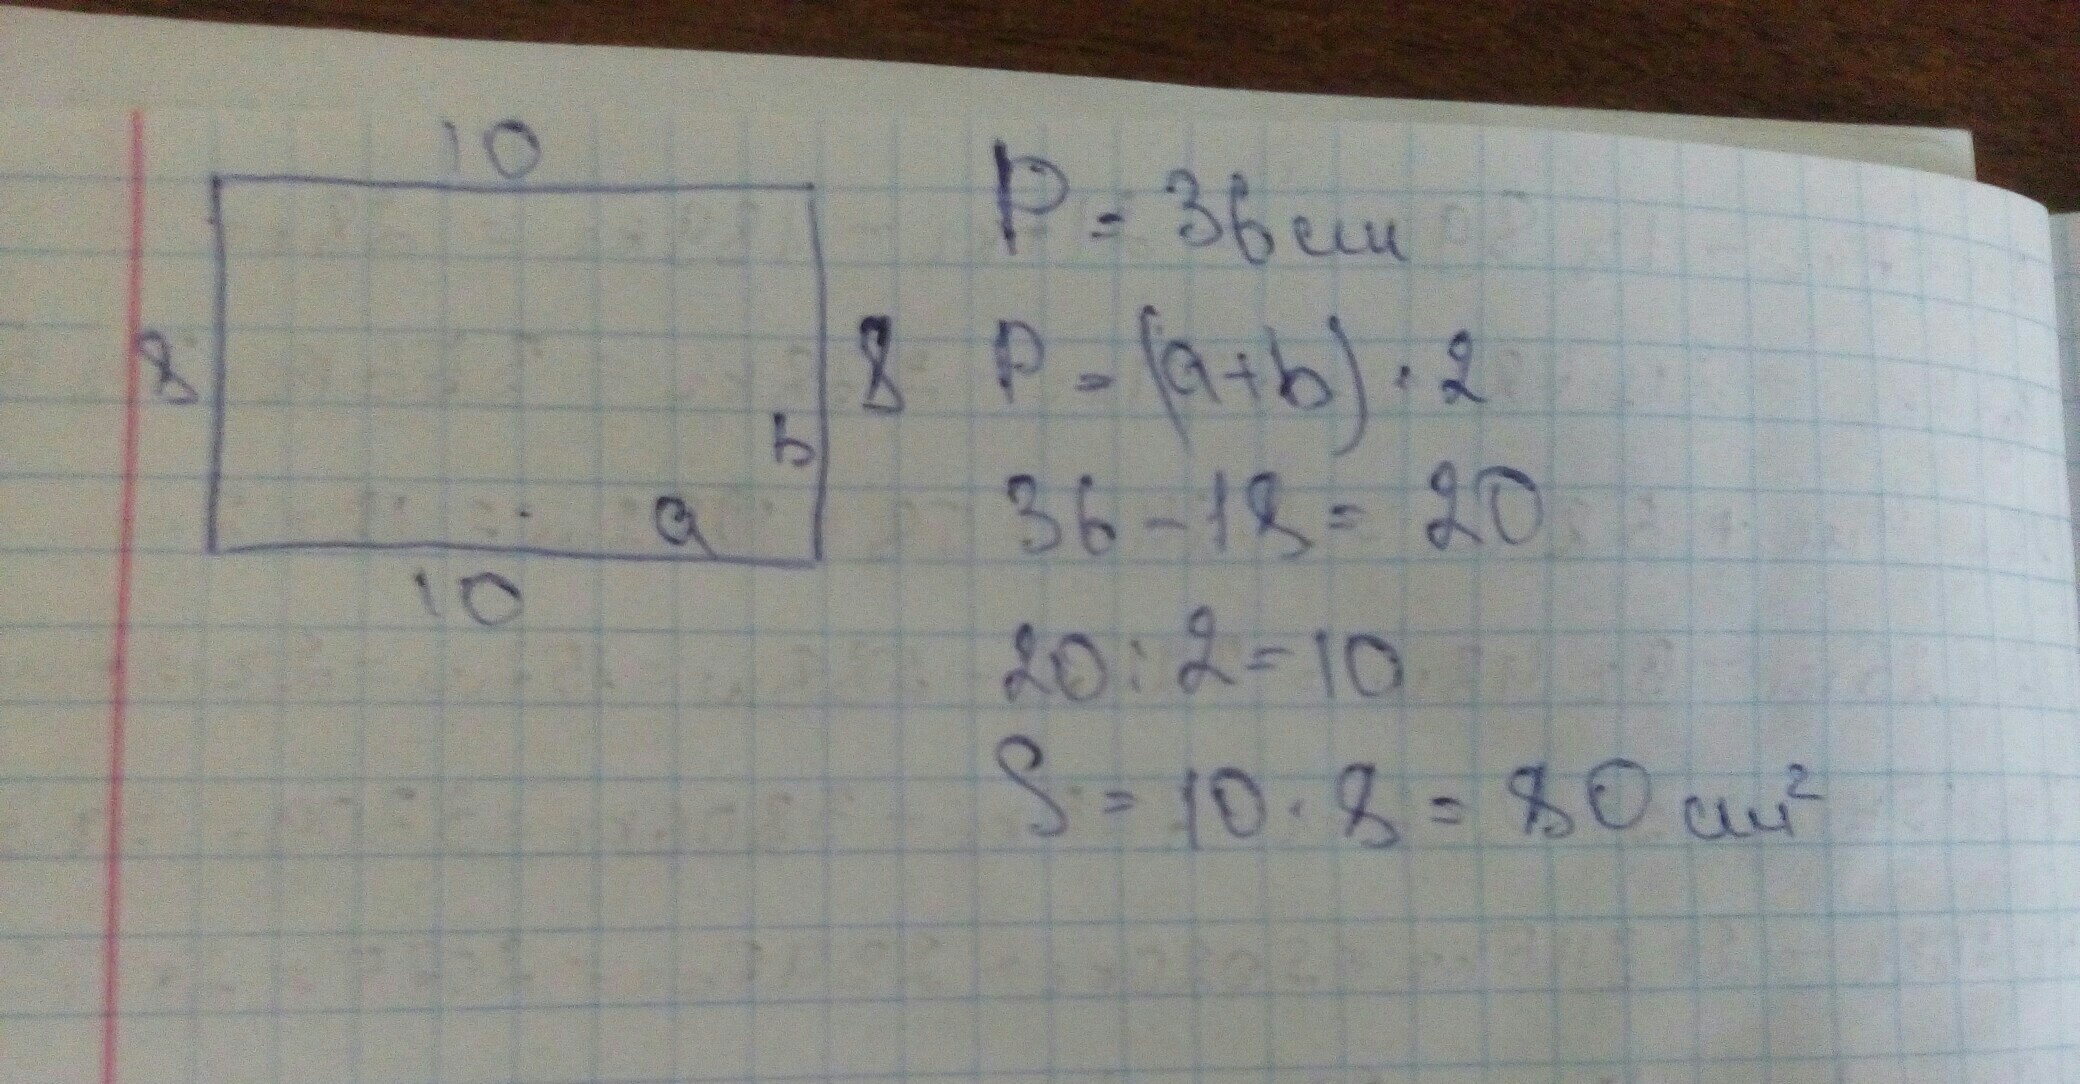 10
8
8
b
a
10
P = 36 см
P = (a+b) · 2
36 - 18 = 20
20 : 2 = 10
S = 10 · 8 = 80 см²